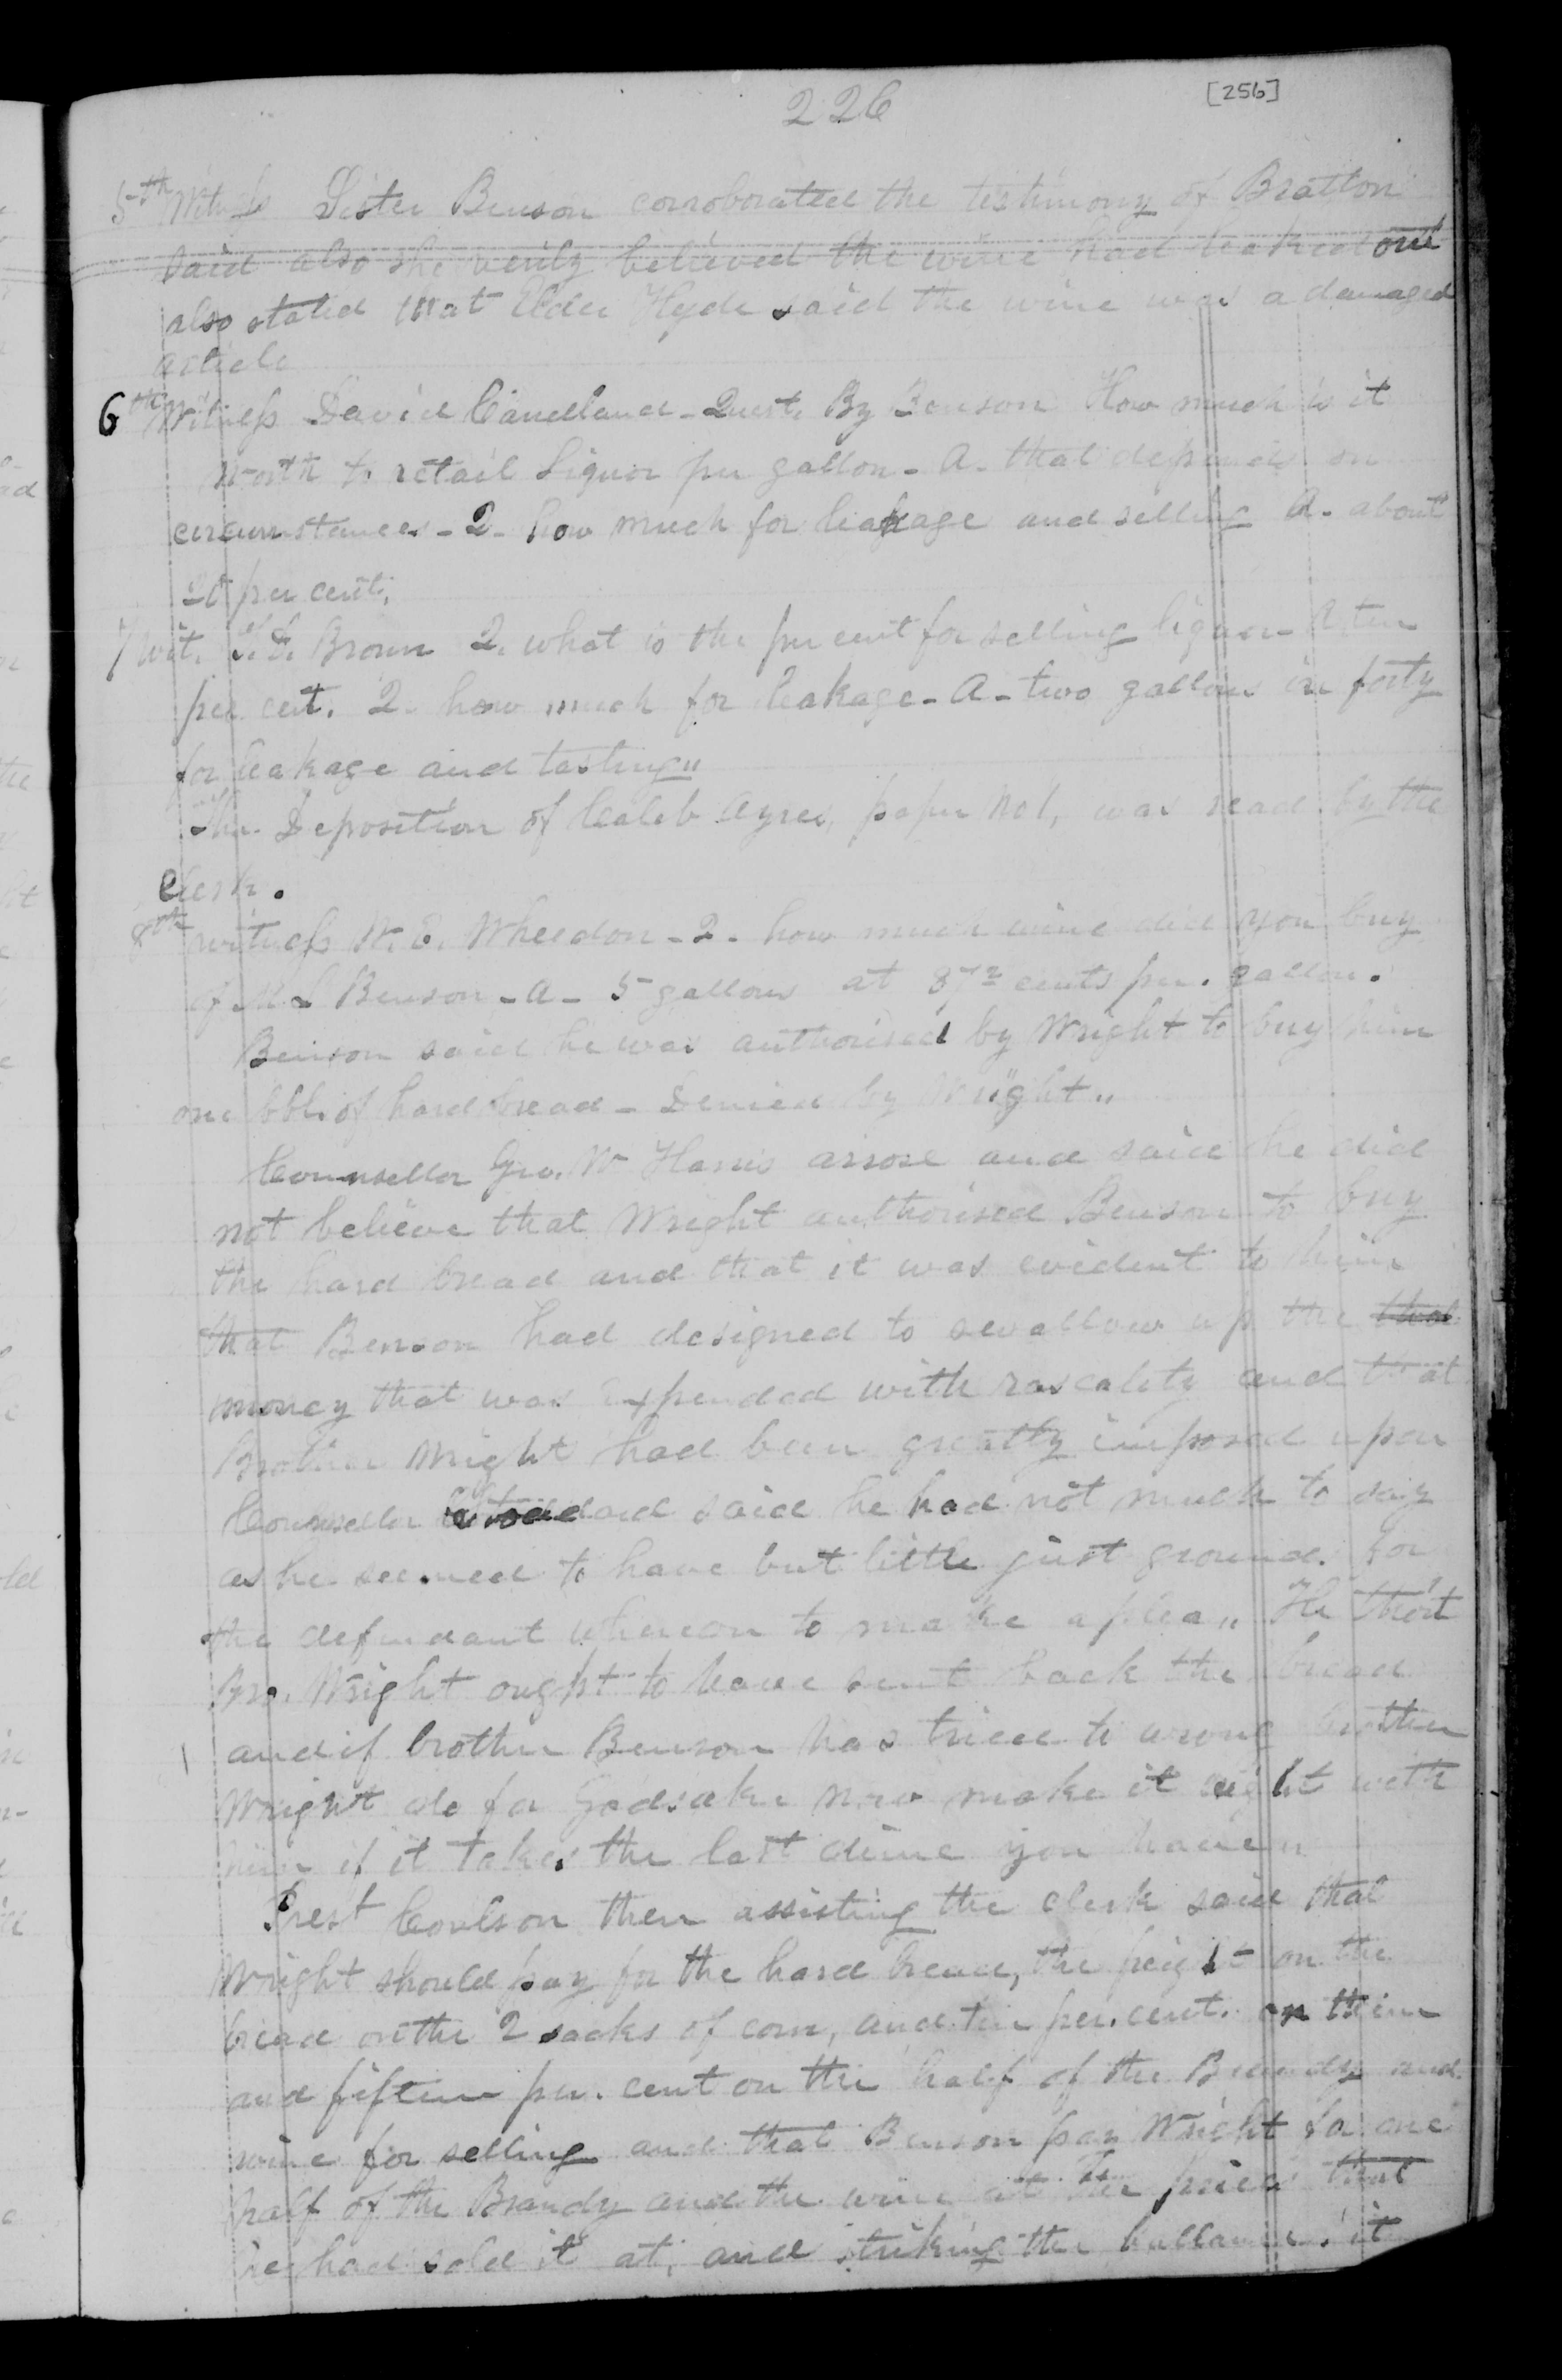 226
[256]
5th Witness Sister Benson corroborated the testimony of Bratton
said also she verily believed the wine had leaked out
also stated that Elder Hyde said the wine was a damaged
article
6th Witness David Candland - Quest. By Benson How much is it
worth to retail Liquor per gallon - A. that depends on
circumstances - Q - how much for leakage and selling A. about
20 per cent.
7 Wit. Brown Q. what is the per cent for selling liquor - A ten
per cent. Q. how much for leakage - A - two gallons in forty
for leakage and tasting"
The Deposition of Caleb Ayres, paper No 1, was read by the
Clerk.
8th witness W. E. Wheedon - Q - how much wine did you buy
of Benson - A - 5 gallons at 87½ cents per. gallon.
Benson said he was authorised by Wright to buy him
one bbl. of hard bread - Denied by Wright"
Counsellor Geo. W Harris arrose and said he did
not believe that Wright authorised Benson to buy
the hard bread and that it was evident to him
that Benson had designed to swallow up the that
money that was expended with rascality and that
Brother Wright had been greatly imposed upon
Counseller said he had not much to say
as he seemed to have but little just ground for
the defendant whereon to make a plea" He thot
Bro. Wright ought to have sent back the bread
and if brother Benson has tried to wrong brother
Wright do for Godsake now make it right with
him if it takes the last dime you have"
Prest Coulson then assisting the clerk said that
Wright should pay for the hard bread, the freight on the
bread on the 2 sacks of corn, and ten per. cent. on them
and fifteen per. cent on the half of the Brandy and
wine for selling and that Benson pay Wright for one
half of the Brandy and the wine at the price that
he had sold it at, and striking the ballance. it